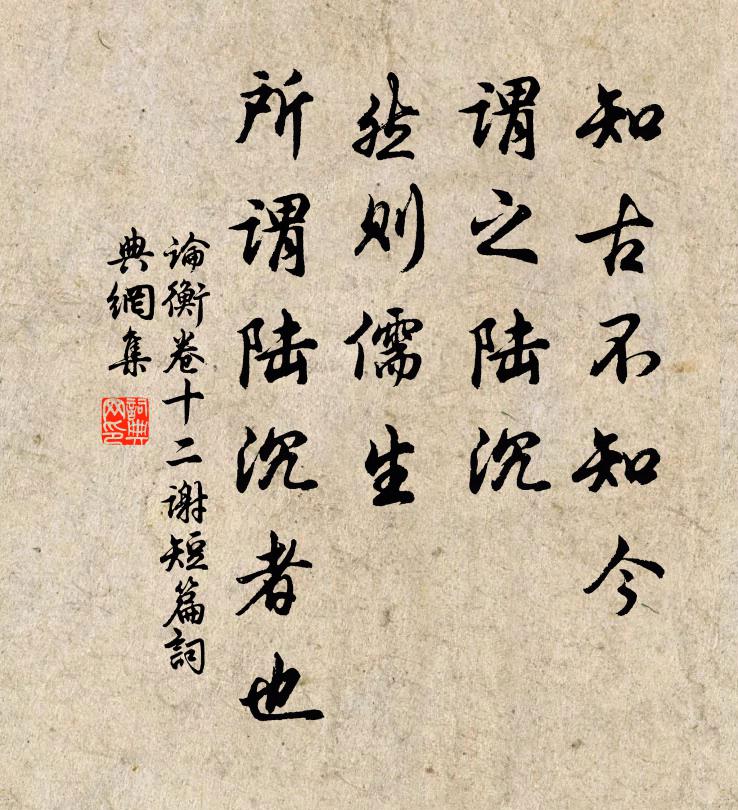 知古不知今
谓之陆沉
然则儒生
所谓陆沉者也
论衡卷十二谢短篇詞
典網集
詞典网印